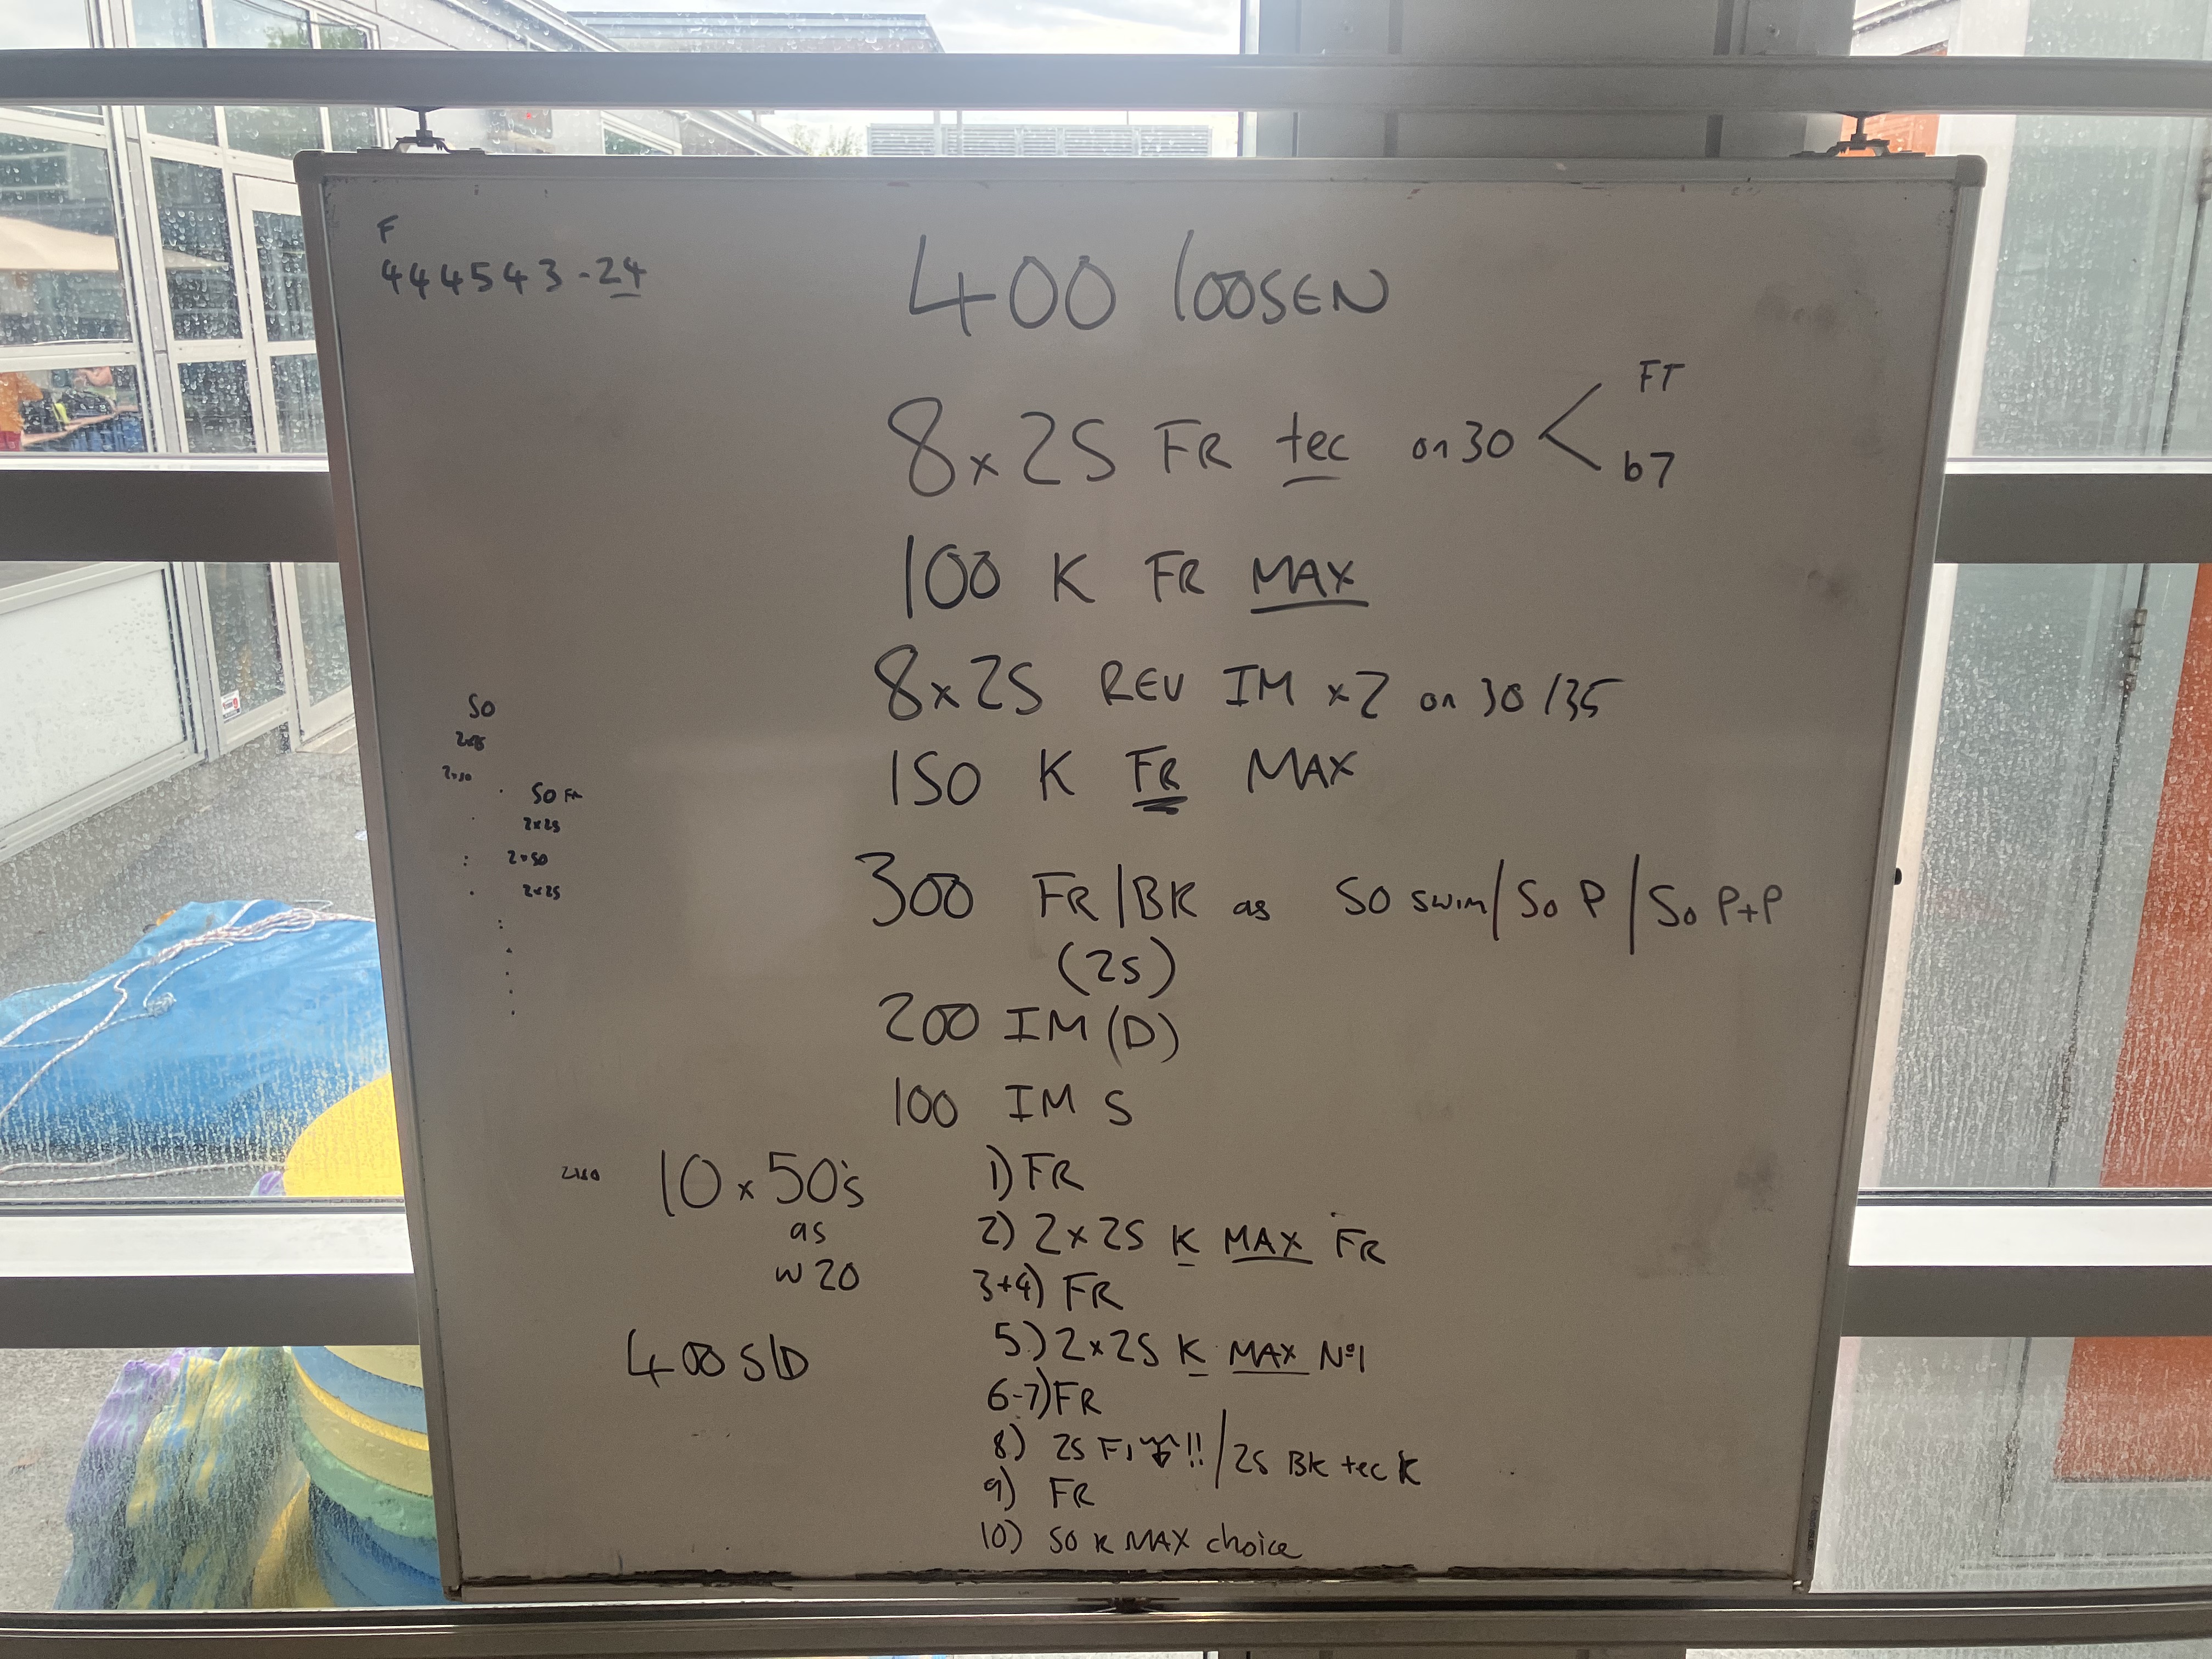 F
444543-24
400 loosen
8x25 FR tec on 30 < FT
b7
100 K FR MAX
8x25 REV IM x2 on 30/35
150 K FR MAX
50
2x50
50 FR
2x25
2x50
2x25
300 FR/BK as 50 swim/50 P/50 P+P
(25)
200 IM (D)
100 IM S
10x50's
as
w20
400 S/D
1) FR
2) 2x25 K MAX FR
3+4) FR
5) 2x25 K MAX Nº1
6-7) FR
8) 25 !!/25 BK tec K
9) FR
10) 50 K MAX choice